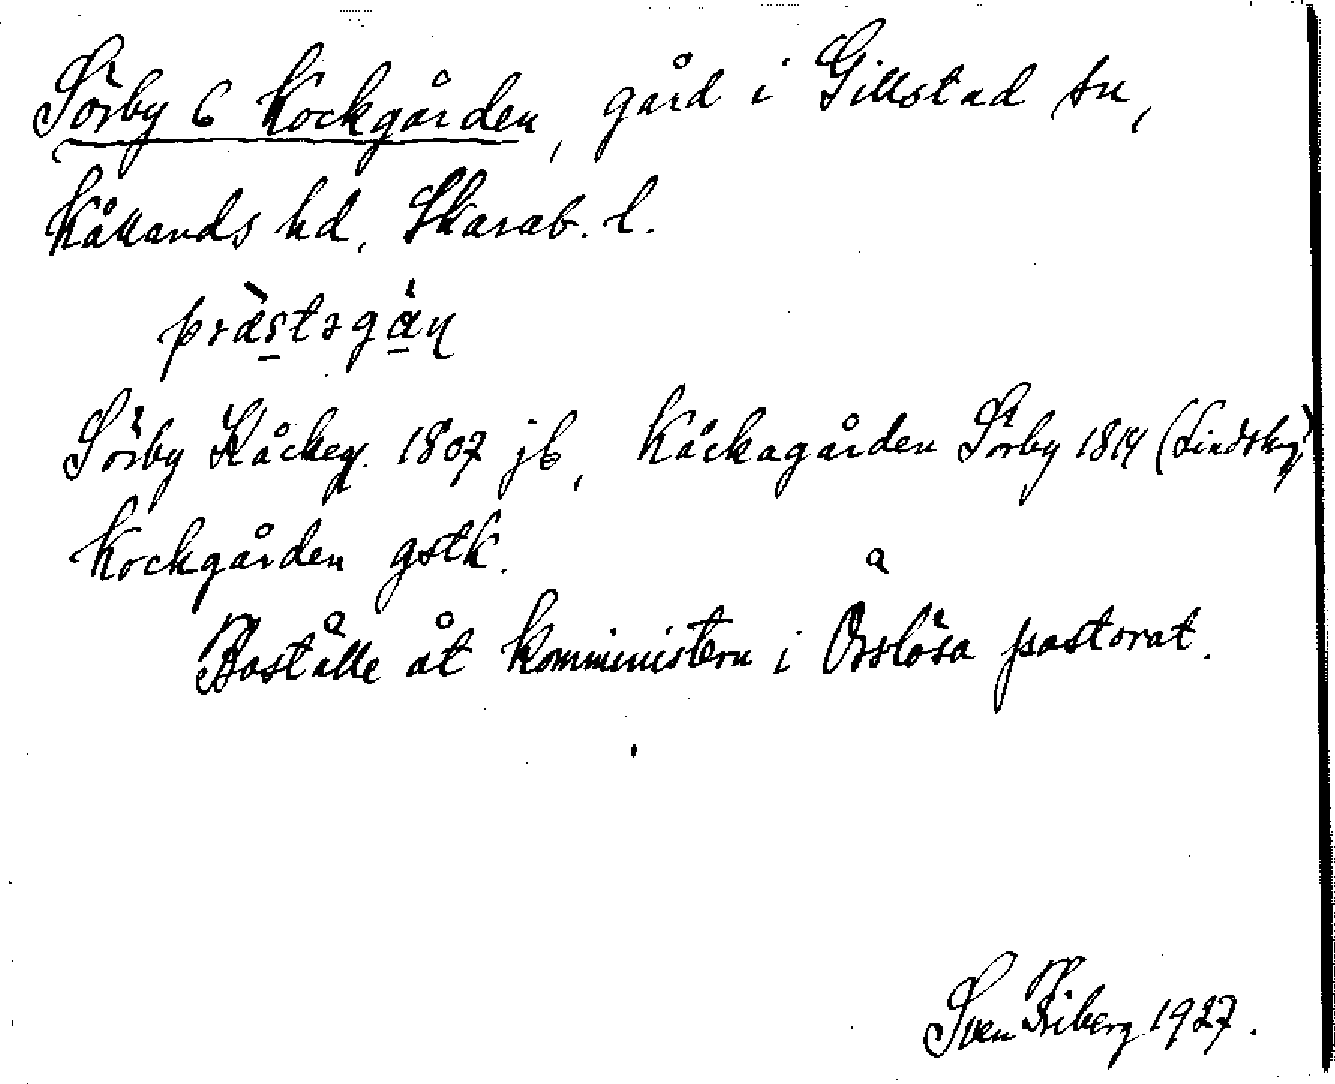 Sörby 6 Kockgården, gård i Gillstad sn,
Kållands hd, Skarab. l.
prästəgàn
Sörby Kåckeg. 1807 jb, Kåckagården Sörby 1814 (Lindskog)
Kockgården gstk.
Boställe åt komministern i Örslösa pastorat.
Sven Friberg 1927.